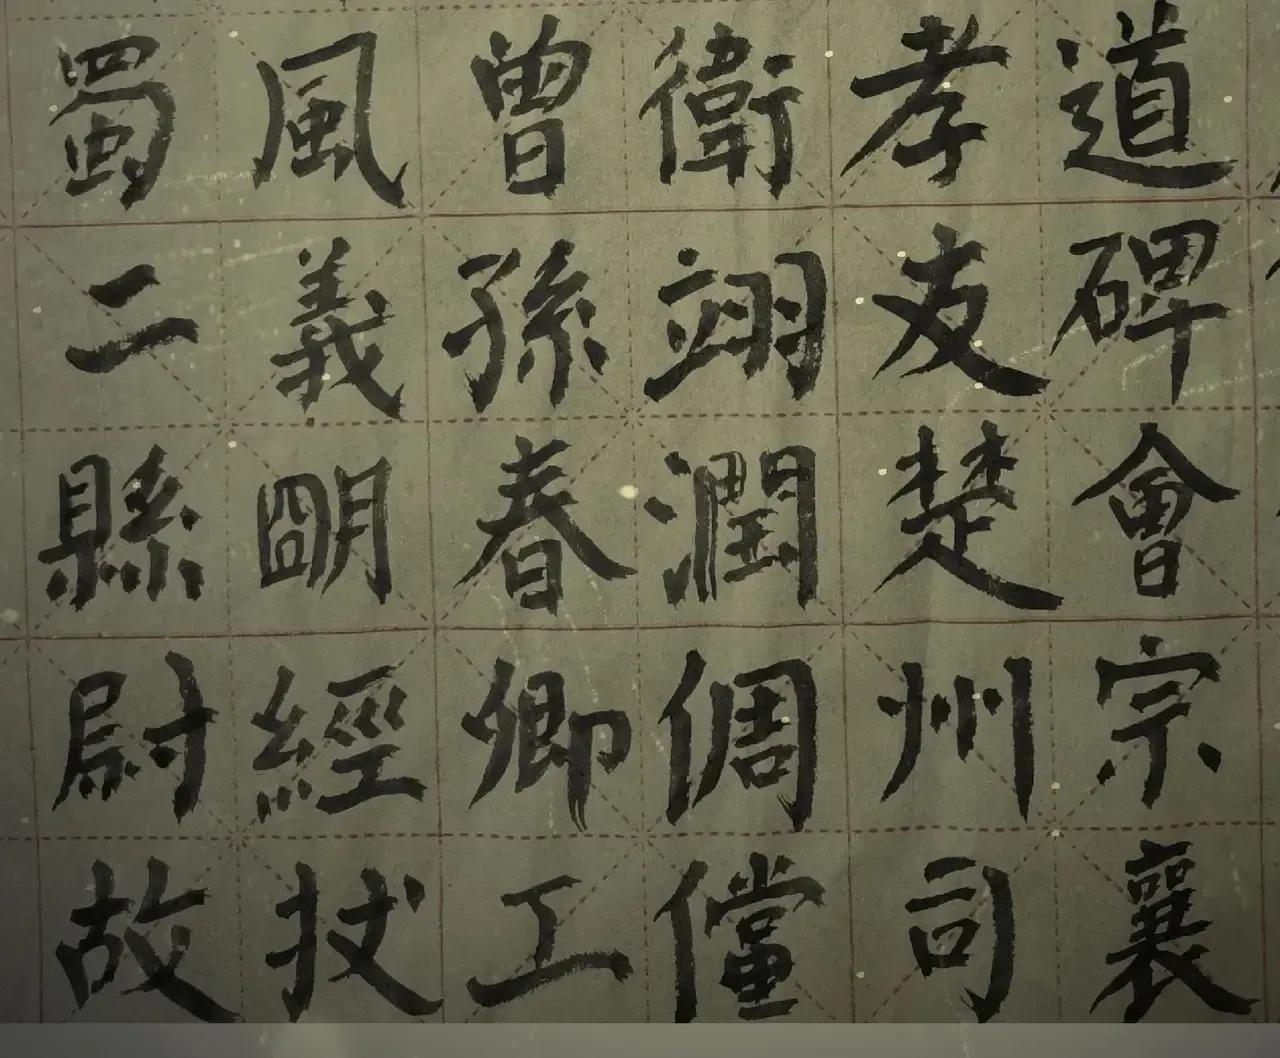 道碑會宗襄
孝友楚州司
衛翊潤倜儻
曾孫春卿工
風義朙經拔
蜀二縣尉故